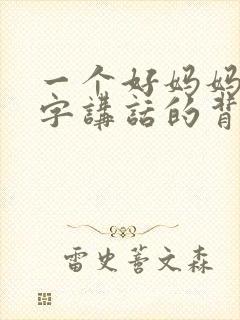 一个好妈妈
字講話的背
雷史菩文森